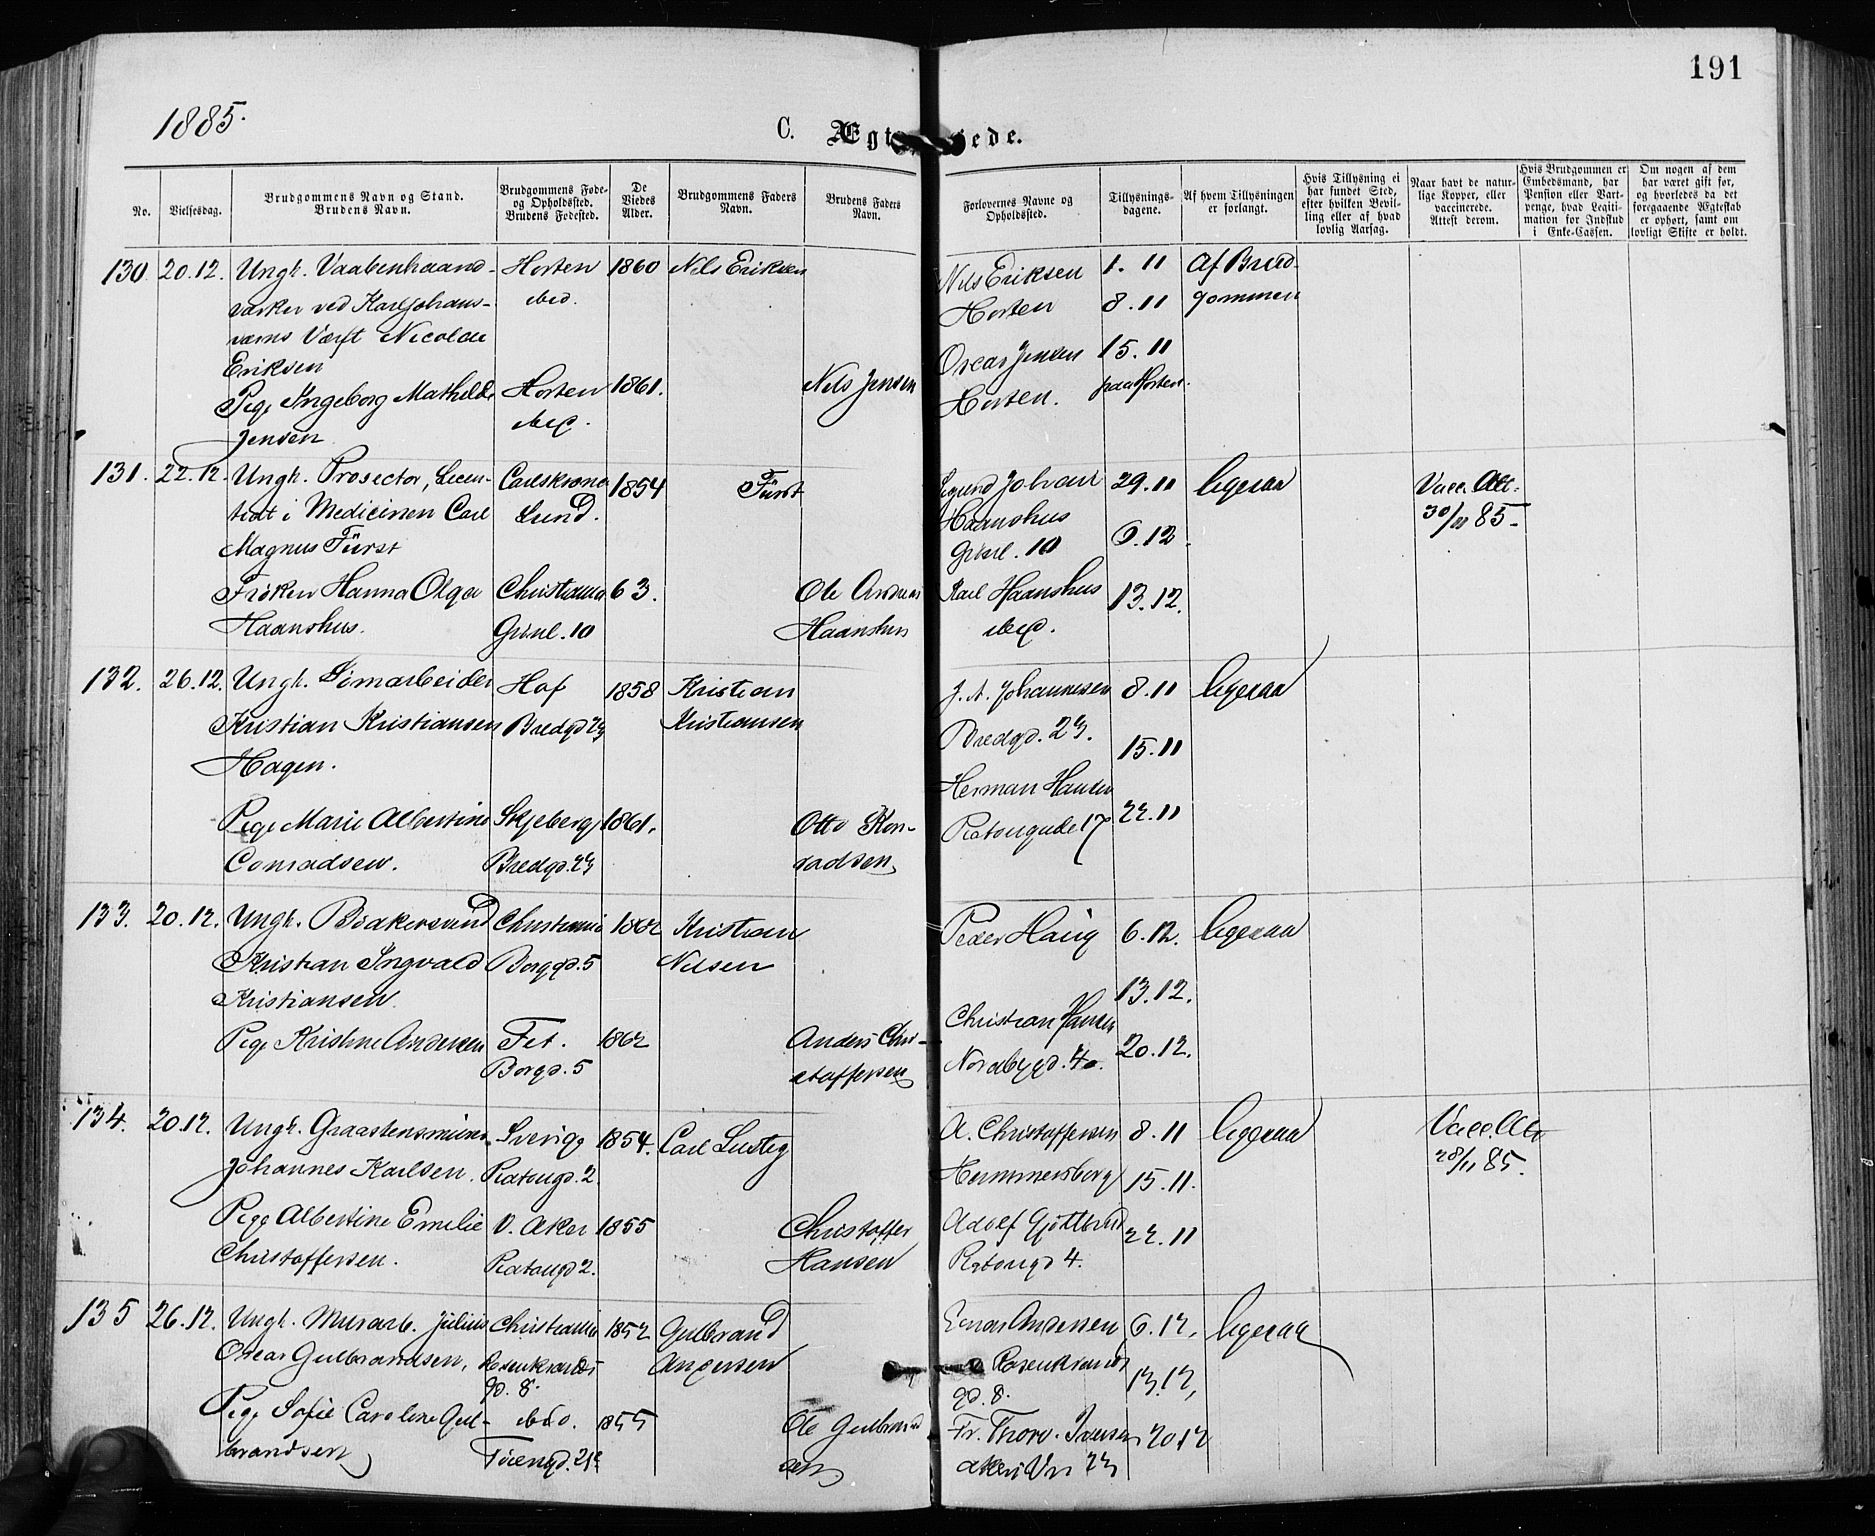 191
1885.
C. Ægt jede.
No.
Vielsesdag.
Brudgommens Navn og Stand.
Brudens Navn.
Brudgommens Føde-
og Opholdssted.
Brudens Fødested.
De
Viedes
Alder.
Brudgommens Faders
Navn.
Brudens Faders
Navn.
Forlovernes Navne og
Opholdssted.
Tillysnings-
dagene.
Af hvem Tillysningen
er forlangt.
Hvis Tillysning ei
har fundet Sted,
efter hvilken Bevil-
ling eller af hvad
lovlig Aarsag.
Naar havt de natur-
lige Kopper, eller
vaccinerede.
Attest derom.
Hvis Brudgommen er
Embedsmand, har
Pension eller Vart-
penge, hvad Legiti-
mation for Indskud
i Enke-Cassen.
Om nogen af dem
har været gift før,
og hvorledes da det
foregaaende Ægteskab
er ophørt, samt om
lovligt Skifte er holdt.
130 20.12. Ungk. Vaabenhaand- Horten 1860 Nils Eriksen Nils Eriksen 1. 11 Af Brud-
værker ved Karljohans- ibid. Horten 8. 11 gommen
værns Værft Nicolai
Eriksen Oscar Jensen 15. 11
Pige Ingeborg Mathilde Horten 1861. Nils Jensen Horten. paa Horten.
Jensen ibid.
131. 22.12. Ungk. Prosector, Licen- Carlskrona 1854 Fürst Sigurd Johan 29.11 ligesaa Vacc. Att.
tiat i Medicinen Carl Lund. Haanshus 30/11 85.
Magnus Fürst Grünl. 10 6.12.
Frøken Hanna Olga Christiania 63. Ole Andreas Karl Haanshus 13.12.
Haanshus. Grünl. 10 Haanshus ibid.
132. 26.12. Ungk. Tømarbeider Hof 1858 Kristian J. A. Johannesen 8.11 ligesaa
Kristian Kristiansen Bredgd 23 Kristiansen Bredgd. 23. 15.11
Hagen. Herman Hansen
Pige Marie Albertine Skjeberg 1861. Otto Kon- 22.11
Conradsen. Bredgd. 23 radsen Platougade 17
133. 20.12. Ungk. Braakersvend Christiania 1862 Kristian Peder Haug 6.12. ligesaa
Kristian Ingvald Borggd. 5 Nilsen
Kristiansen 13.12.
Pige Kristine Andersen Fet. 1862 Anders Chri- Christian Hansen
Borgd. 5 stoffersen Nordbygd. 40. 20.12.
134. 20.12. Ungk. Graastensminer Sverige 1854. Carl Lustig A. Christoffersen 8.11 ligesaa Vacc. Att.
Johannes Karlsen. Platougd. 2. Hammersborg 15.11. 28/11 85.
Pige Albertine Emilie V. Aker 1855 Christoffer Adolf 22.11
Christoffersen. Platougd 2. Hansen Platougd 4.
135 26.12. Ungk. Murarb. Julius Christiania 1852 Gulbrand Andersen 6.12. ligesaa
Oscar Gulbrandsen, Rosenkrands- Andersen Rosenkrands 13.12.
gd. 8. gd. 8.
Pige Sofie Caroline Gul- ibid. 1855 Ole Gulbrand Fr. Thorv. Iversen 20.12
brandsen Tøiengd. 21c sen